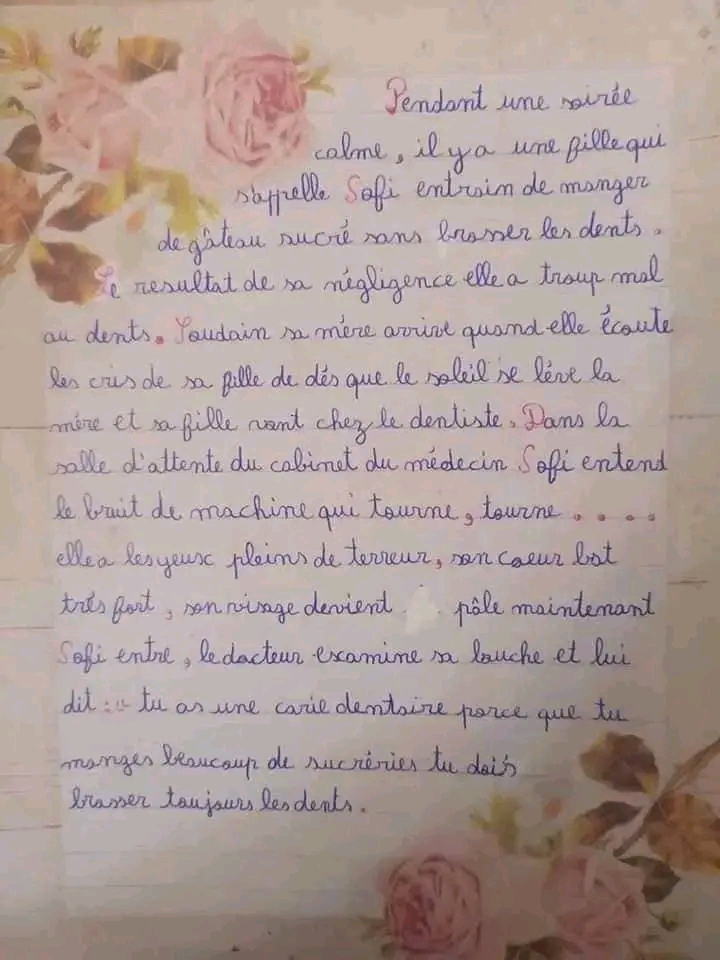 Pendant une soirée
calme, il y a une fille qui
s'appelle Sofi entrain de manger
de gâteau sucré sans brosser les dents.
Le resultat de sa négligence elle a troup mal
au dents. Soudain sa mére arrive quand elle écoute
les cris de sa fille de dés que le soleil se léve la
mére et sa fille vont chez le dentiste. Dans la
salle d'attente du cabinet du médecin Sofi entend
le bruit de machine qui tourne, tourne . . . .
elle a les yeux pleins de terreur, son coeur bat
trés fort, son visage devient pâle maintenant
Sofi entre, le docteur examine sa bouche et lui
dit : tu as une carie dentaire parce que tu
manges beaucoup de sucréries tu dois
brosser toujours les dents.